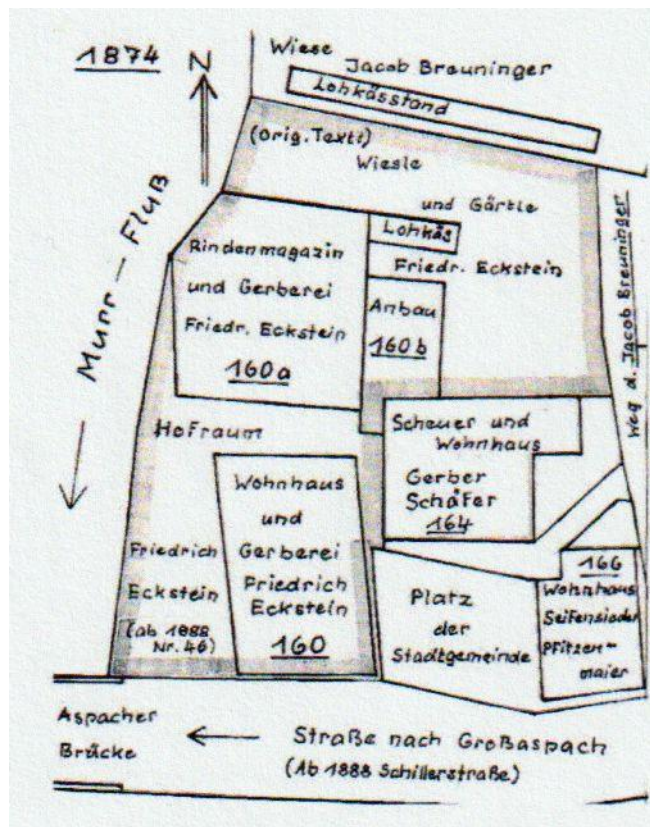 1874
N
Wiese
Jacob Breuninger
Lohkässtand
(Orig. Text!)
Wiesle
und Gärtle
Lohkäs
Friedr. Eckstein
Murr – Fluß
Rindenmagazin
und Gerberei
Friedr. Eckstein
160a
Anbau
160b
Weg d. Jacob Breuninger
Hofraum
Scheuer und
Wohnhaus
Gerber
Schäfer
164
Wohnhaus
und
Gerberei
Friedrich
Eckstein
160
Friedrich
Eckstein
(ab 1888
Nr. 46)
Platz
der
Stadtgemeinde
166
Wohnhaus
Seifensieder
Pfitzen=
maier
Aspacher
Brücke
Straße nach Großaspach
(Ab 1888 Schillerstraße)